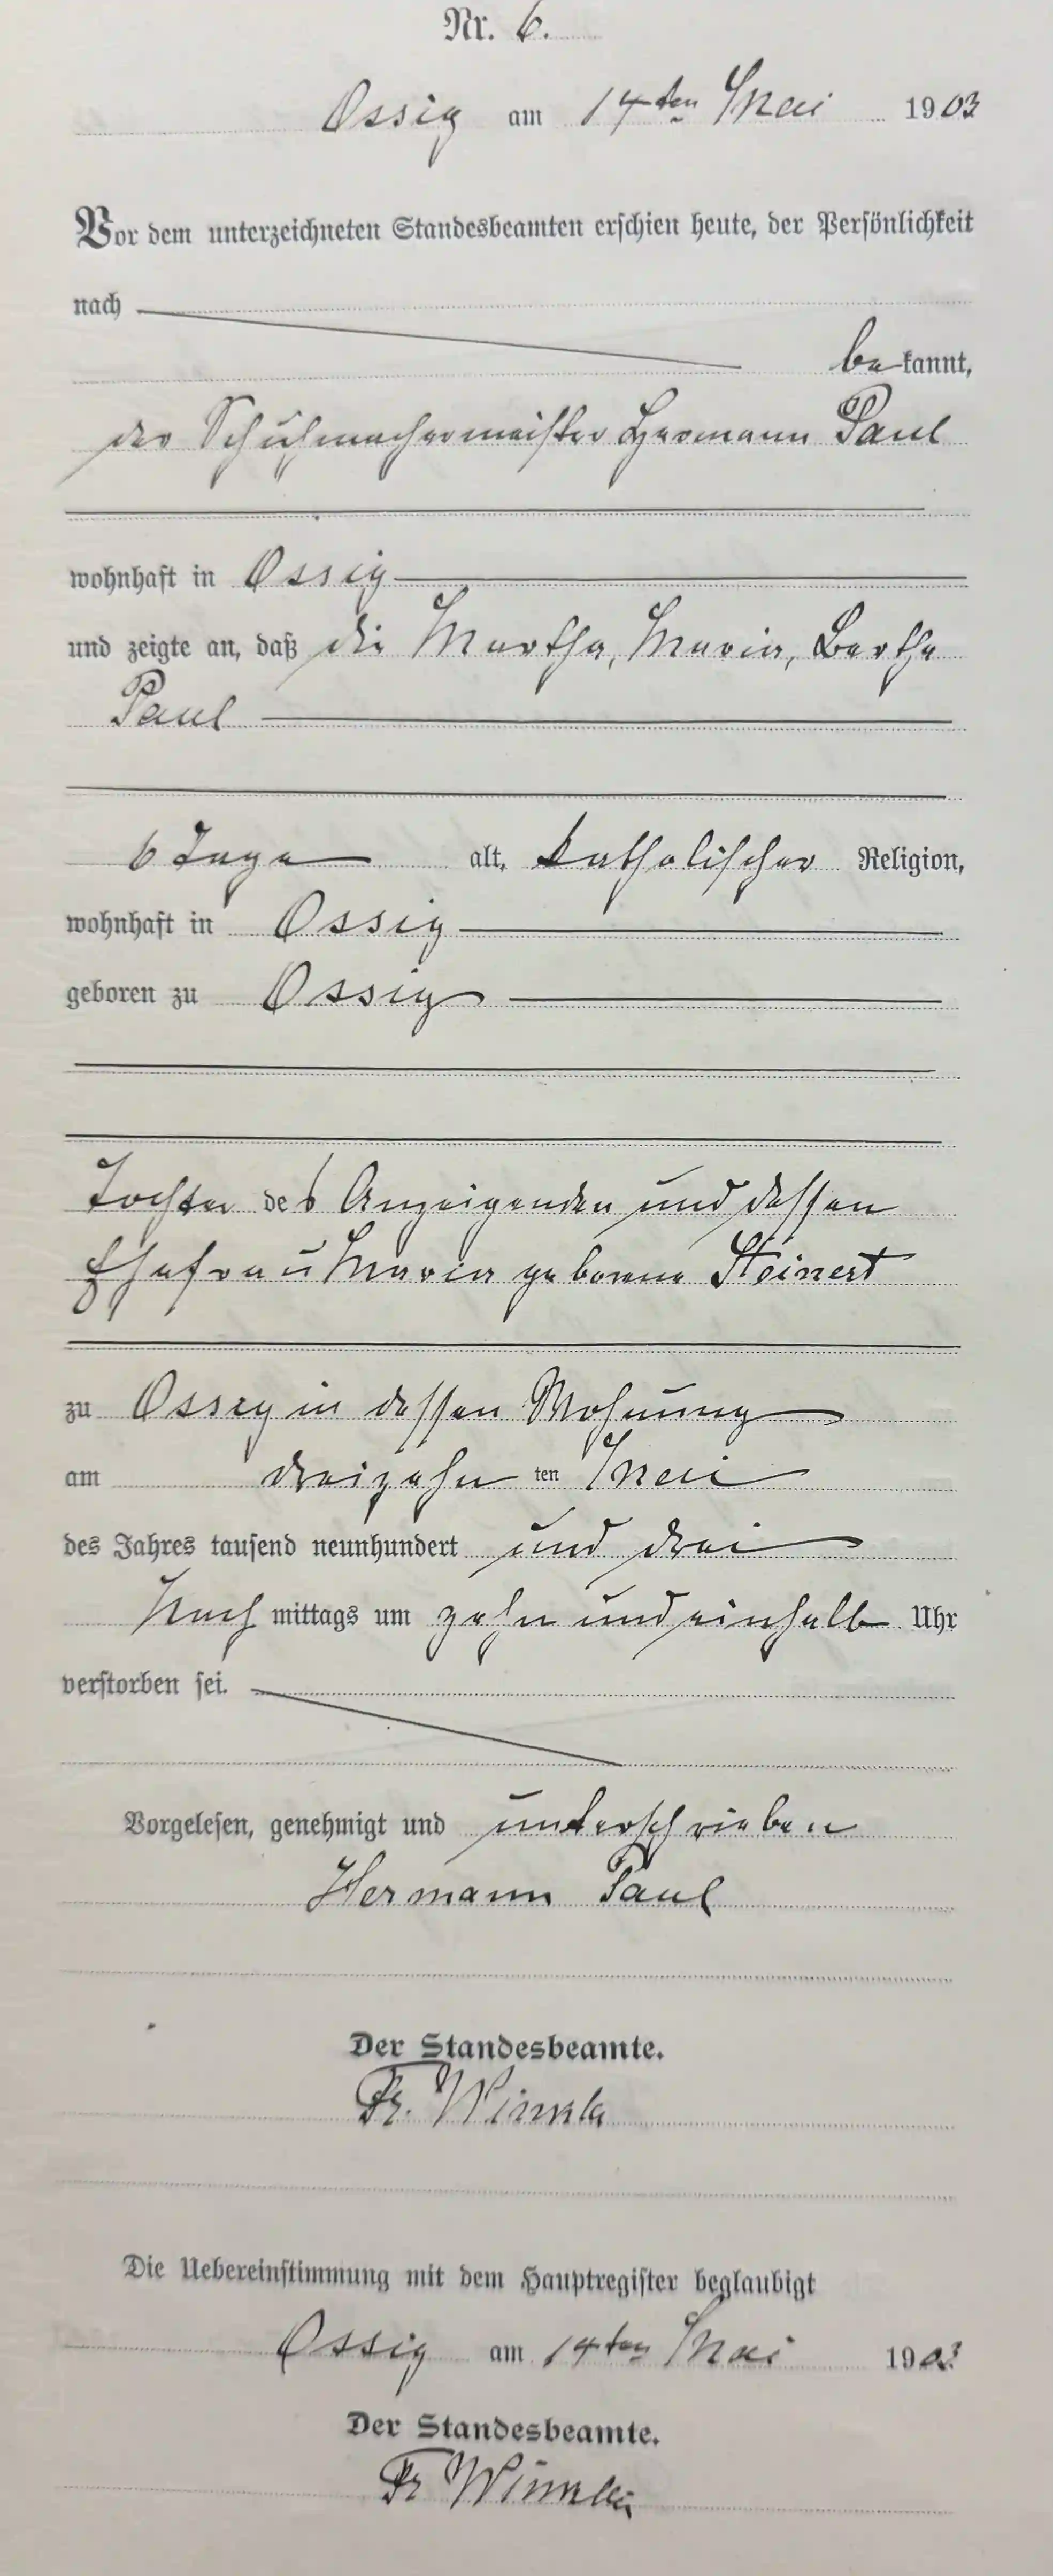 Nr. 6.
Ossig am 14ten Mai 1903
Vor dem unterzeichneten Standesbeamten erschien heute, der Persönlichkeit
nach
bekannt,
der Schuhmachermeister Hermann Paul
wohnhaft in Ossig
und zeigte an, daß die Martha, Maria, Bertha
Paul
6 Tage alt, katholischer Religion,
wohnhaft in Ossig
geboren zu Ossig
Tochter des Anzeigenden und dessen
Ehefrau Maria geborene Steinert
zu Ossig in dessen Wohnung
am dreizehnten Mai
des Jahres tausend neunhundert und drei
Nachmittags um zehn und einhalb Uhr
verstorben sei.
Vorgelesen, genehmigt und unterschrieben
Hermann Paul
Der Standesbeamte.
Fr.
Die Uebereinstimmung mit dem Hauptregister beglaubigt
Ossig am 14ten Mai 1903
Der Standesbeamte.
Fr